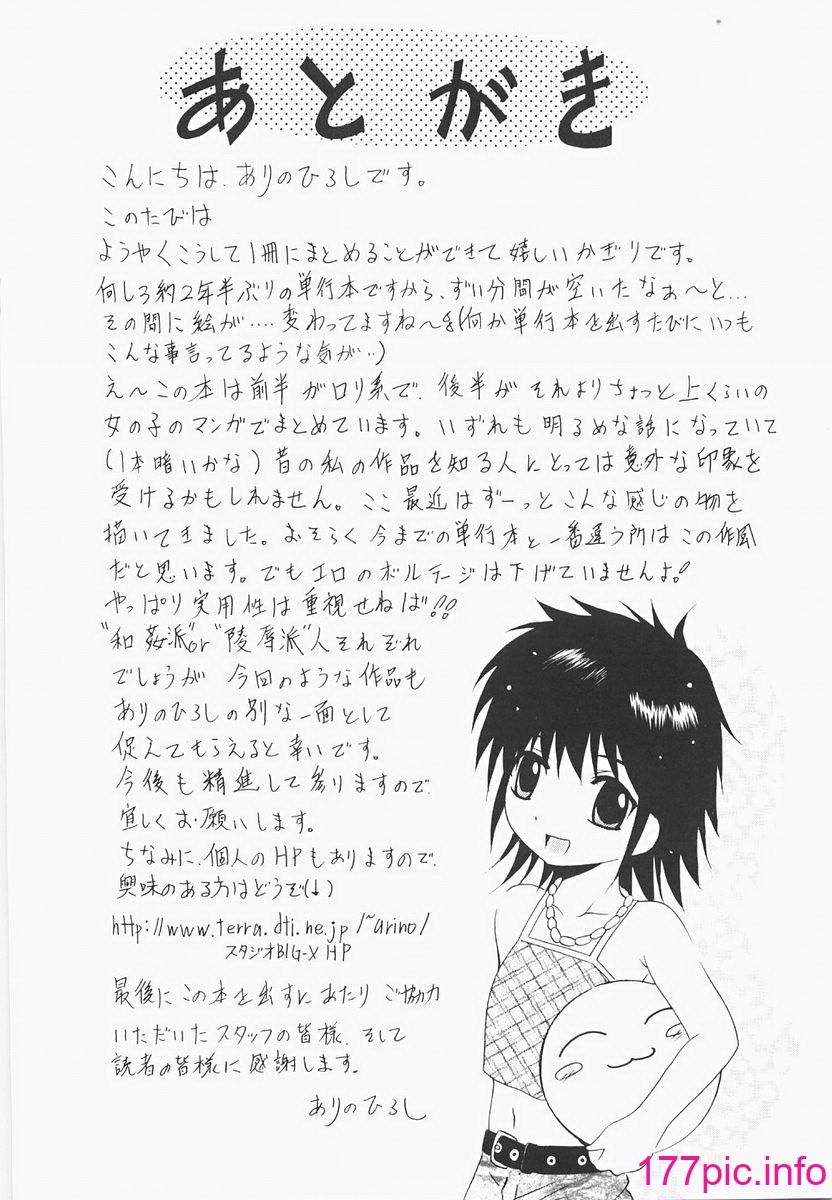 あとがき
こんにちは、ありのひろしです。
このたびは
ようやくこうして1冊にまとめることができて嬉しいかぎりです。
何しろ約2年半ぶりの単行本ですから、ずい分間が空いたなぁ〜と…
その間に絵が‥‥変わってますね〜(何か単行本を出すたびにいつも
こんな事言ってるような気が‥)
え〜この本は前半がロリ系で、後半がそれよりちょっと上くらいの
女の子のマンガでまとめています。いずれも明るめな話になっていて
(1本暗いかな)昔の私の作品を知る人にとっては意外な印象を
受けるかもしれません。ここ最近はずーっとこんな感じの物を
描いてきました。おそらく今までの単行本と一番違う所はこの作風
だと思います。でもエロのボルテージは下げていませんよ!
やっぱり実用性は重視せねば!!
"和姦派"or"陵辱派"人それぞれ
でしょうが 今回のような作品も
ありのひろしの別な一面として
捉えてもらえると幸いです。
今後も精進して参りますので、
宜しくお願いします。
ちなみに、個人のHPもありますので、
興味のある方はどうぞ(↓)
http://www.terra.dti.ne.jp/~arino/
スタジオBIG-X HP
最後にこの本を出すにあたりご協力
いただいたスタッフの皆様、そして
読者の皆様に感謝します。
ありのひろし
177pic.info